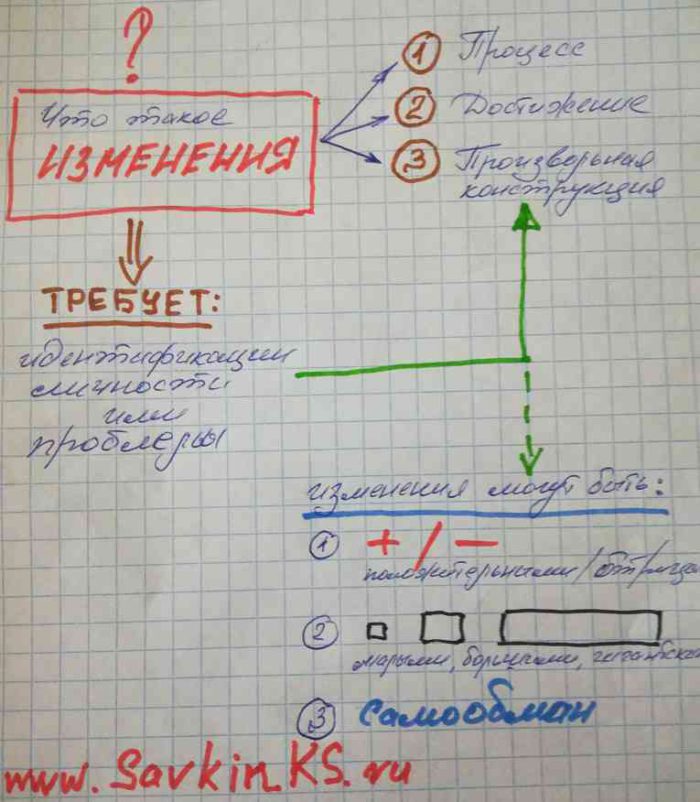 ?
Что такое
ИЗМЕНЕНИЯ
1 Процесс
2 Достижение
3 Произвольная
конструкция
ТРЕБУЕТ:
идентификации
личности
или
проблемы
изменения могут быть:
1 + / -
положительными/отрица
2
малыми, большими, гигантски
3 Самообман
www.SavkinKS.ru